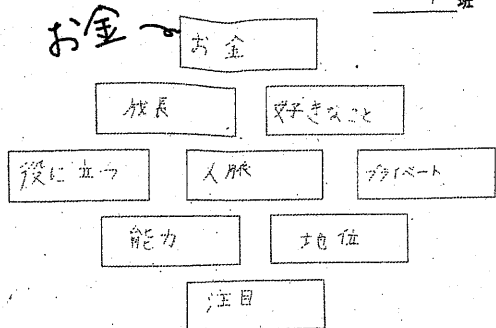 班
お金
お金
成長 好きなこと
役に立つ 人脈 プライベート
能力 地位
注目